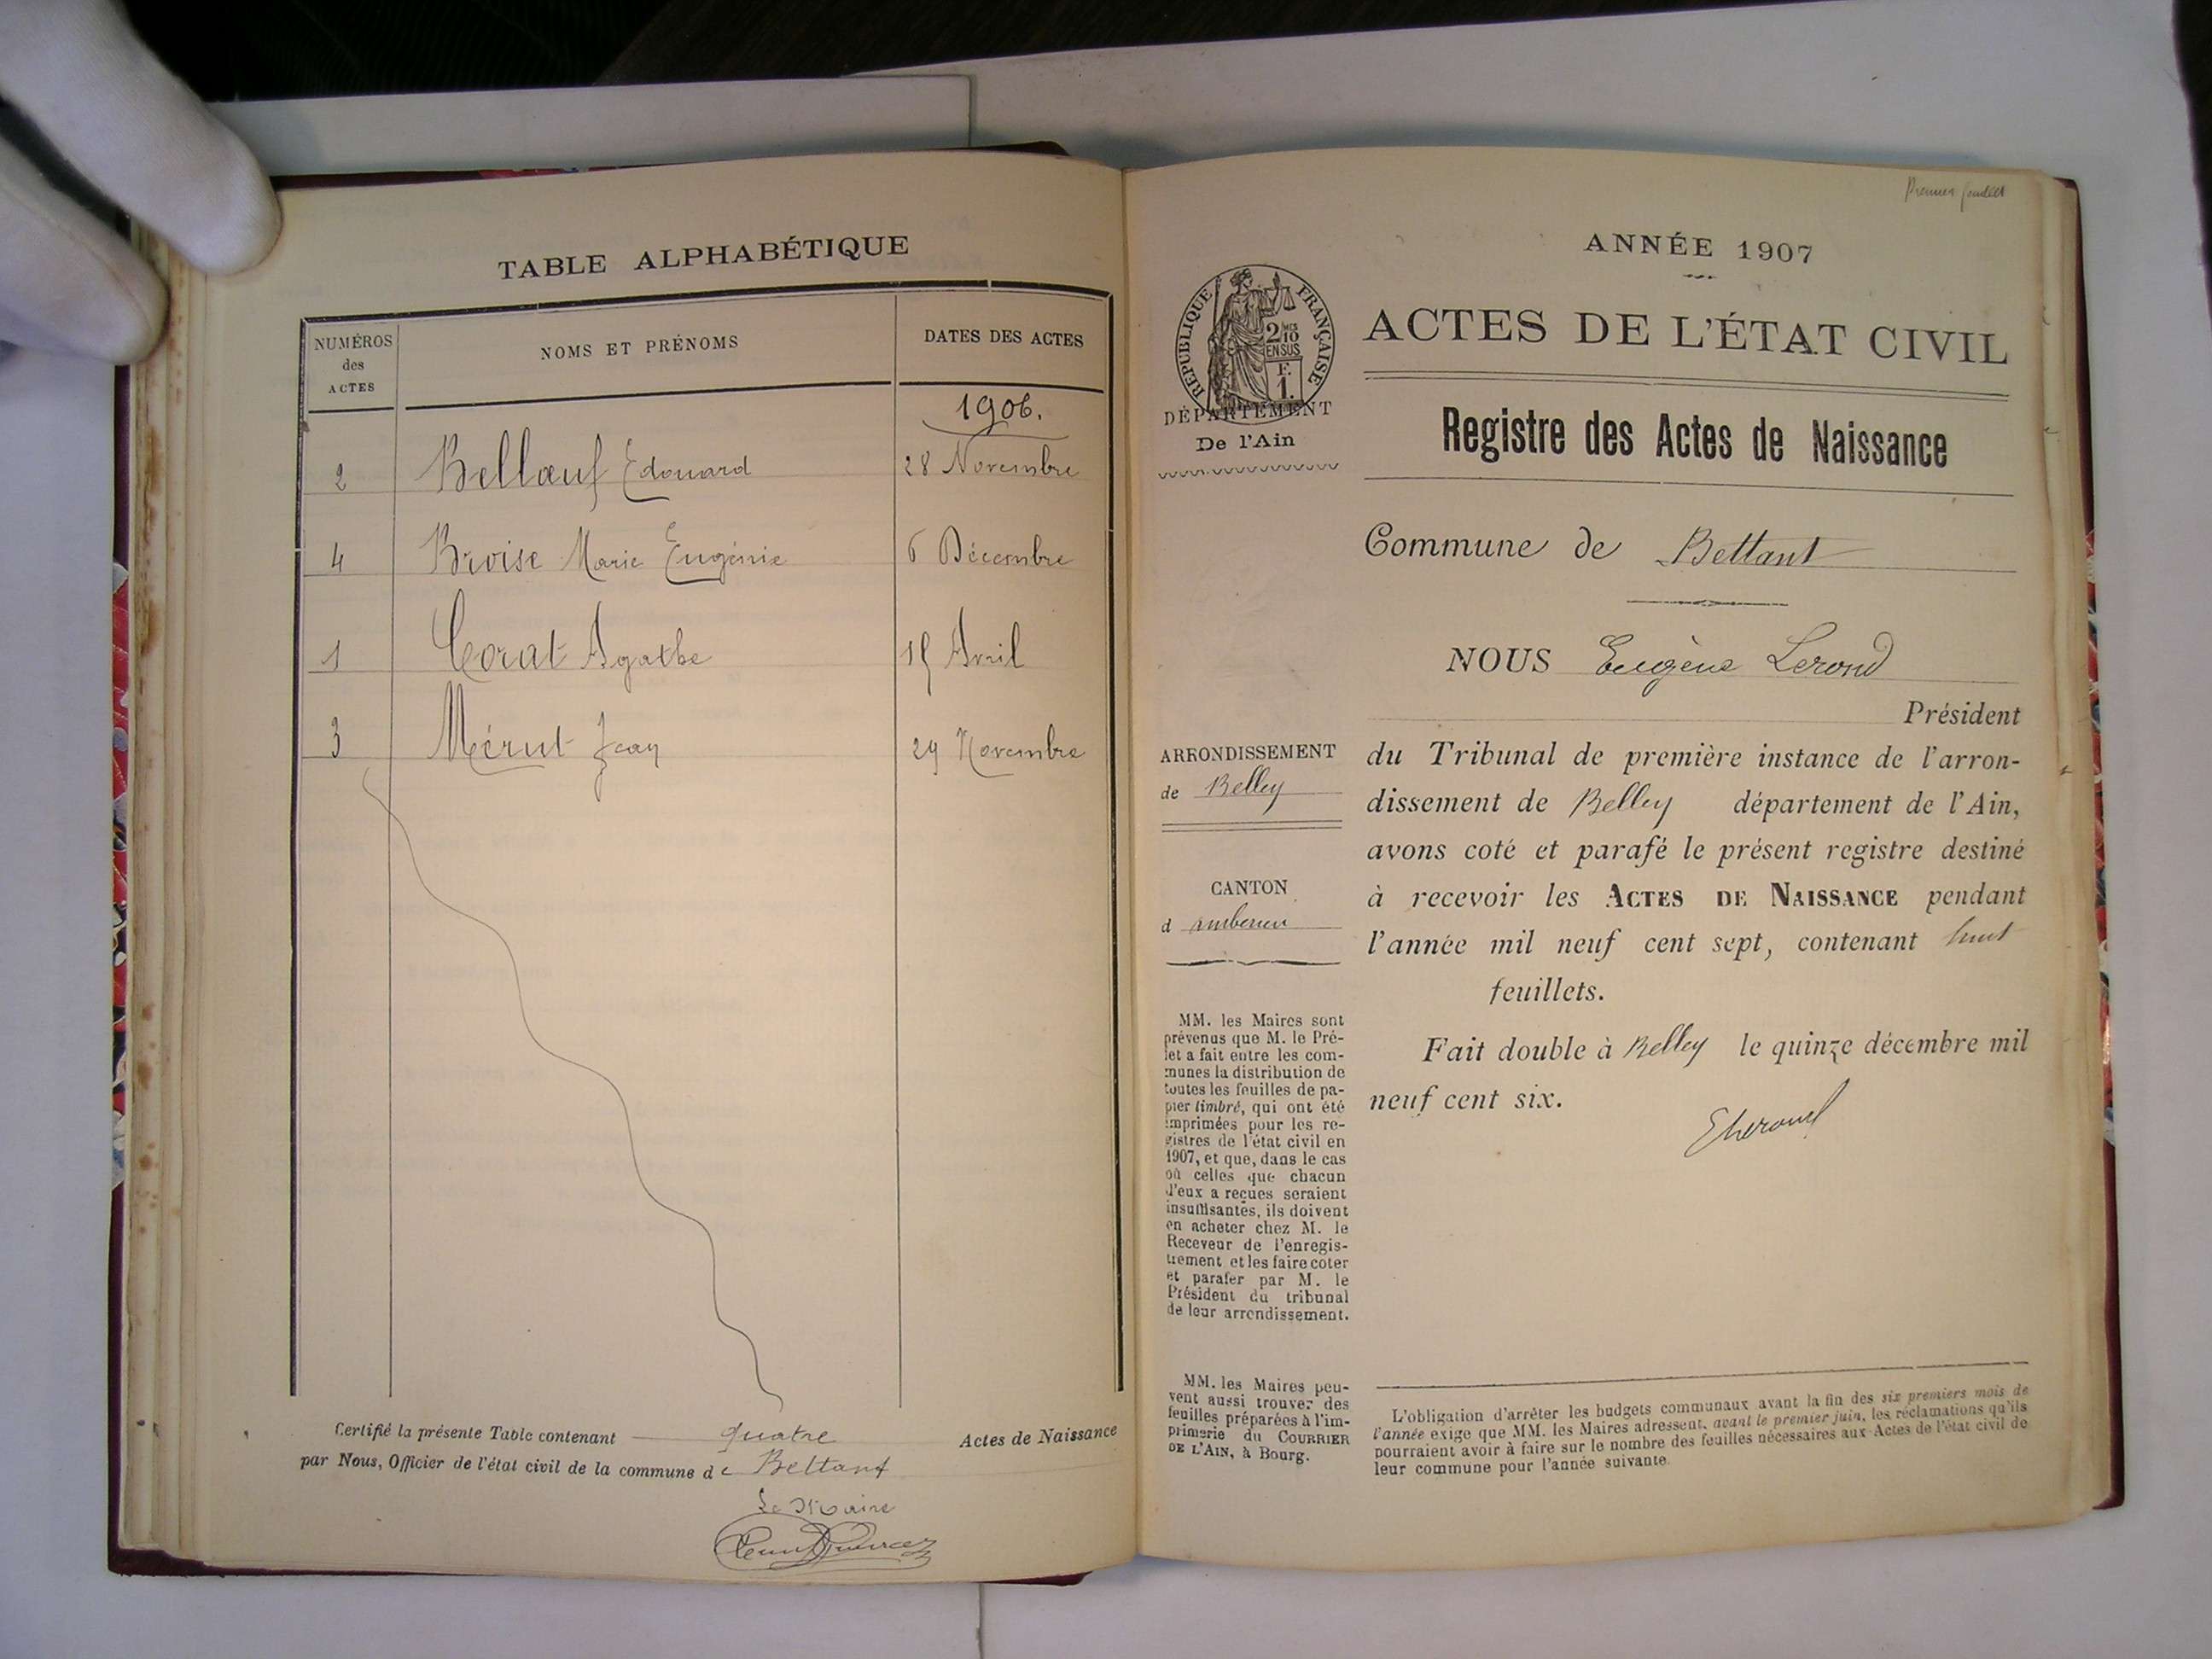 TABLE ALPHABÉTIQUE
NUMÉROS des ACTES
NOMS ET PRÉNOMS
DATES DES ACTES
1906.
2 Bellœuf Edouard 28 Novembre
4 Broise Marie Eugénie 6 Décembre
1 Corat Agathe 15 Avril
3 Mérut Jean 29 Novembre
Certifié la présente Table contenant quatre Actes de Naissance
par Nous, Officier de l'état civil de la commune de Bettant
Le Maire
Premier feuillet
ANNÉE 1907
RÉPUBLIQUE FRANÇAISE
2 MES 10
EN SUS
F.
1.
ACTES DE L'ÉTAT CIVIL
DÉPARTEMENT
De l'Ain
Registre des Actes de Naissance
Commune de Bettant
NOUS Eugène Lerond
Président
ARRONDISSEMENT
de Belley
du Tribunal de première instance de l'arron-
dissement de Belley département de l'Ain,
avons coté et parafé le présent registre destiné
à recevoir les ACTES DE NAISSANCE pendant
l'année mil neuf cent sept, contenant huit
feuillets.
Fait double à Belley le quinze décembre mil
neuf cent six.
CANTON
d'ambérieu
MM. les Maires sont
prévenus que M. le Pré-
fet a fait entre les com-
munes la distribution de
toutes les feuilles de pa-
pier timbré, qui ont été
imprimées pour les re-
gistres de l'état civil en
1907, et que, dans le cas
où celles que chacun
d'eux a reçues seraient
insuffisantes, ils doivent
en acheter chez M. le
Receveur de l'enregis-
trement et les faire coter
et parafer par M. le
Président du tribunal
de leur arrondissement.
MM. les Maires peu-
vent aussi trouver des
feuilles préparées à l'im-
primerie du COURRIER
DE L'AIN, à Bourg.
L'obligation d'arrêter les budgets communaux avant la fin des six premiers mois de
l'année exige que MM. les Maires adressent, avant le premier juin, les réclamations qu'ils
pourraient avoir à faire sur le nombre des feuilles nécessaires aux Actes de l'état civil de
leur commune pour l'année suivante.